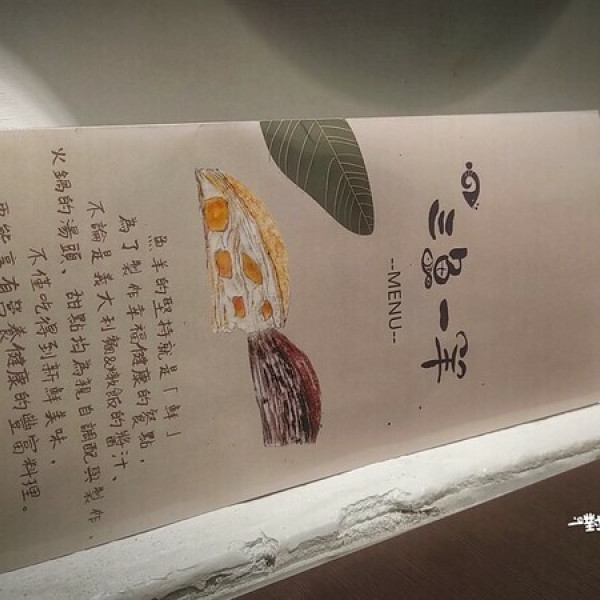 三一羊
--MENU--
魚羊的堅持就是「鮮」
為了製作幸福健康的餐點，
不論是義大利麵&燉飯的醬汁、
火鍋的湯頭、甜點均為親自調配與製作，
不僅吃得到新鮮美味，
更能享有營養健康的豐富料理。